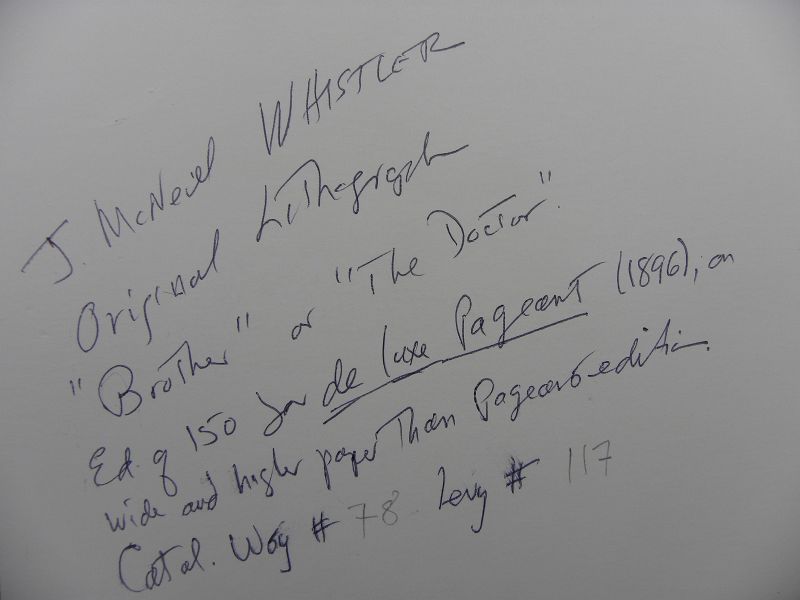 J. McNeill WHISTLER
Original Lithograph
"Brother" or "The Doctor".
Ed of 150 for de luxe Pageant (1896), on
wide and higher paper than Pageant edition.
Catal. Way # 78 Levy # 117